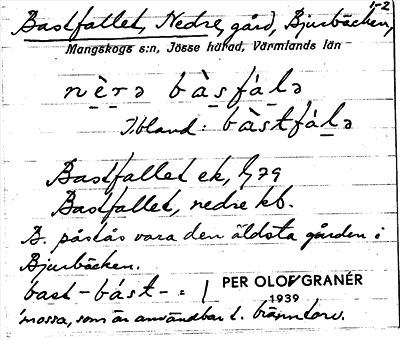 1-2
Bastfallet, Nedre, gård, Bjurbäcken,
Mangskogs s:n, Jösse härad, Värmlands län
nè̠rə bàs̠fál̠ə
Ibland: bàstfál̠ə
Bastfallet ek, 1/79
Bastfallet, nedre kb.
B. påstås vara den äldsta gården i
Bjurbäcken.
bast- bást- =
PER OLOF GRANÉR
1939
mossa, som är användbar t. bränntorv.